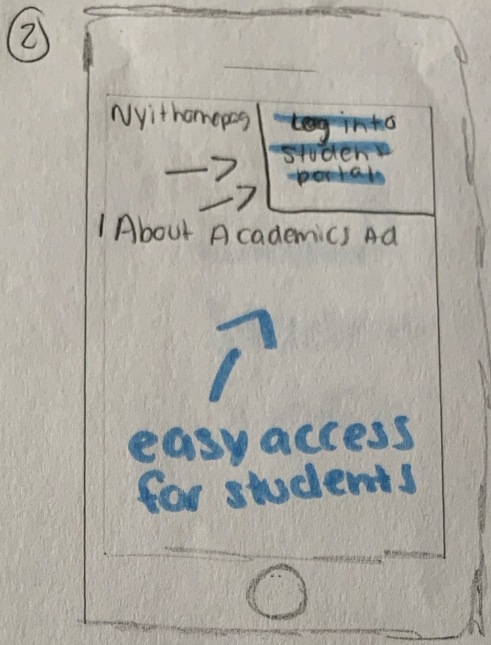 2
Nyithomepag
Log into
student
portal
| About Academics Ad
easy access
for students